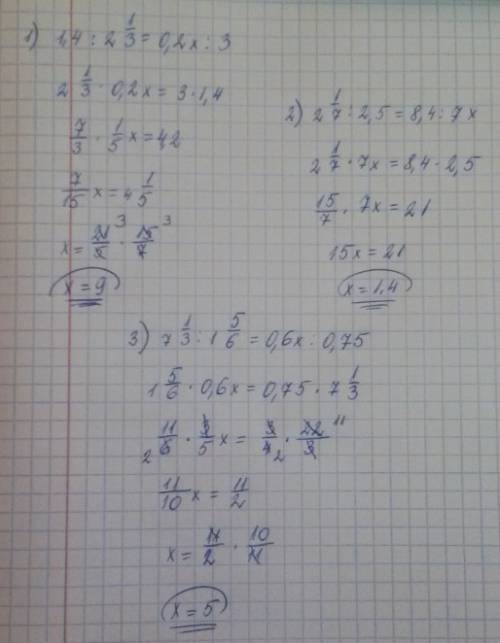 1) 1,4 : 2 1/3 = 0,2x : 3
2 1/3 · 0,2x = 3 · 1,4
7/3 · 1/5 x = 4,2
7/15 x = 4 1/5
x = 21/5 3 · 15/7 3
x = 9
2) 2 1/7 : 2,5 = 8,4 : 7x
2 1/7 · 7x = 8,4 · 2,5
15/7 · 7x = 21
15x = 21
x = 1,4
3) 7 1/3 : 1 5/6 = 0,6x : 0,75
1 5/6 · 0,6x = 0,75 · 7 1/3
2 11/6 · 3/5 x = 3/4 2 · 22/3 11
11/10 x = 11/2
x = 11/2 · 10/11
x = 5